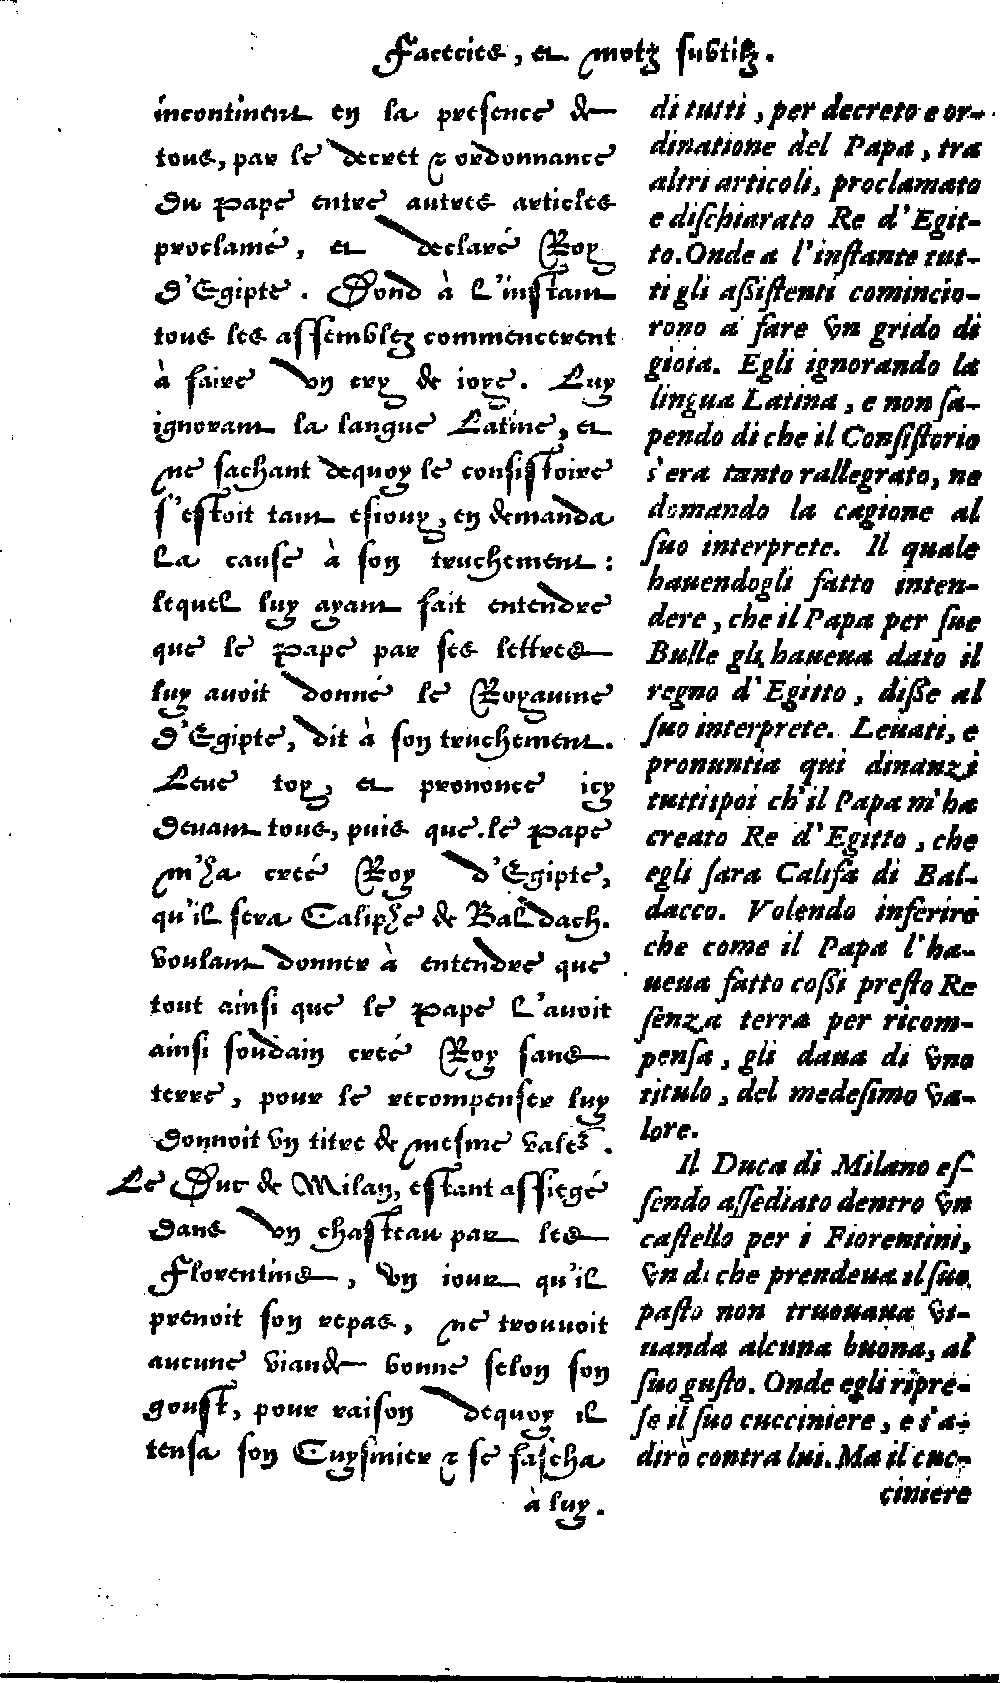 Facecies, et motz subtilz.
incontinent en la presence de
tous, par le decret & ordonnance
du Pape entre autres articles
proclamé, et declaré Roy
d'Egipte. Dond à l'instant
tous les assemblez commencerent
à faire vn cry de ioye. Luy
ignorant la langue Latine, et
ne sachant dequoy le consistoire
s'estoit tant esiouy, en demanda
la cause à son truchement:
lequel luy ayant fait entendre
que le Pape par ses lettres
luy auoit donné le Royaume
d'Egipte, dit à son truchement.
Leue toy, et prononce icy
deuant tous, puis que le Pape
m'ha creé Roy d'Egipte,
qu'il sera Caliphe de Baldach.
voulant donner à entendre que
tout ainsi que le Pape l'auoit
ainsi soudain creé Roy sans
terre, pour le recompenser luy
donnoit vn titre de mesme valeur.
Le Duc de Milan, estant assiegé
dans vn chasteau par les
Florentins, vn iour qu'il
prenoit son repas, ne trouuoit
aucune viande bonne selon son
goust, pour raison dequoy il
tensa son Cuysinier & se fascha
à luy.
di tutti, per decreto e or-
dinatione del Papa, tra
altri articoli, proclamato
e dischiarato Re d'Egit-
to. Onde a l'instante tut-
ti gli assistenti comincio-
rono a fare vn grido di
gioia. Egli ignorando la
lingua Latina, e non sa-
pendo di che il Consistorio
s'era tanto rallegrato, ne
domando la cagione al
suo interprete. Il quale
hauendogli fatto inten-
dere, che il Papa per sue
Bulle gli haueua dato il
regno d'Egitto, disse al
suo interprete. Leuati, e
pronuntia qui dinanzi
tutti: poi ch'il Papa m'ha
creato Re d'Egitto, che
egli sara Califa di Bal-
dacco. Volendo inferire
che come il Papa l'ha-
ueua fatto cossi presto Re
senza terra per ricom-
pensa, gli daua di vno
titulo, del medesimo va-
lore.
Il Duca di Milano es-
sendo assediato dentro vn
castello per i Fiorentini,
vn di che prendeua il suo
pasto non truouaua vi-
uanda alcuna buona, al
suo gusto. Onde egli ripre-
se il suo cucciniere, e s'a-
dirò contra lui. Ma il cuc-
ciniere